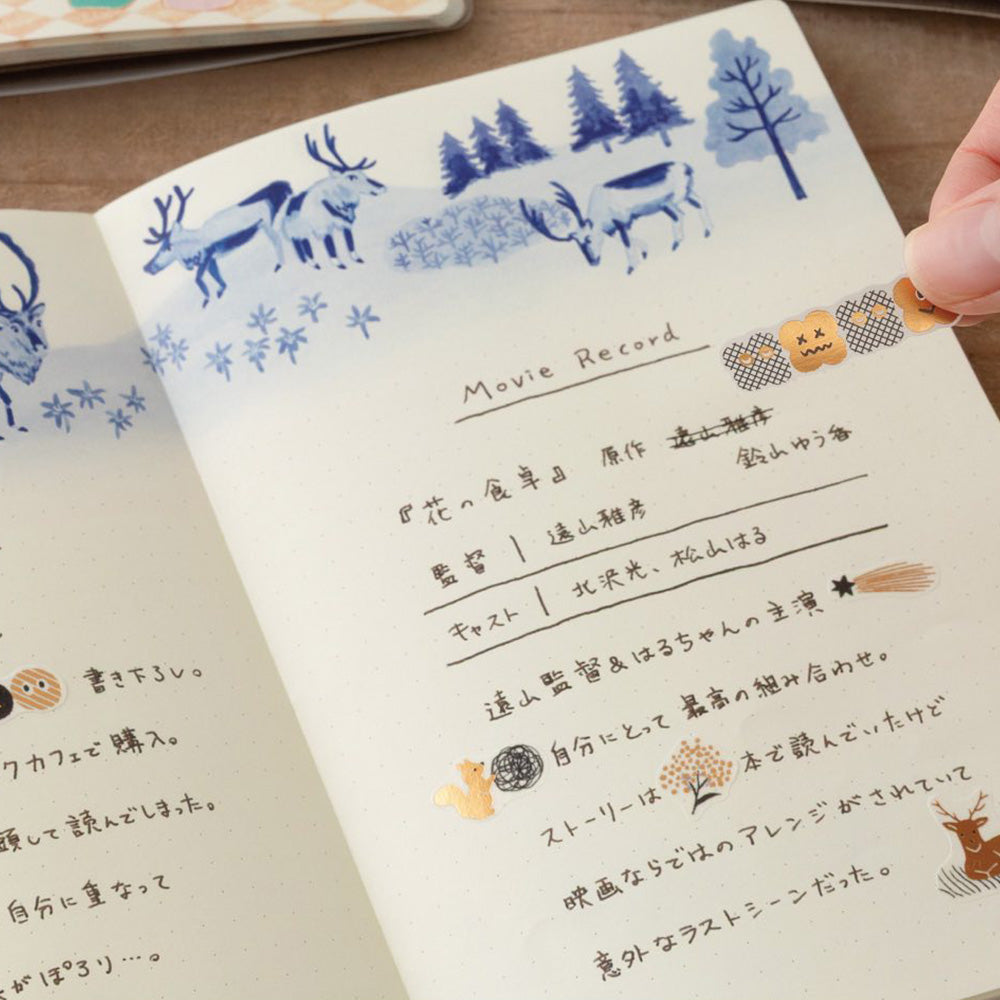 書き下ろし。
クカフェで購入。
して読んでしまった。
自分に重なって
がぽろり…。
Movie Record
『花の食卓』 原作 遠山雅彦
鈴山ゆう香
監督 | 遠山雅彦
キャスト | 北沢光、松山はる
遠山監督&はるちゃんの主演
自分にとって 最高の組み合わせ。
ストーリーは 本で読んでいたけど
映画ならではの アレンジがされていて
意外なラストシーンだった。